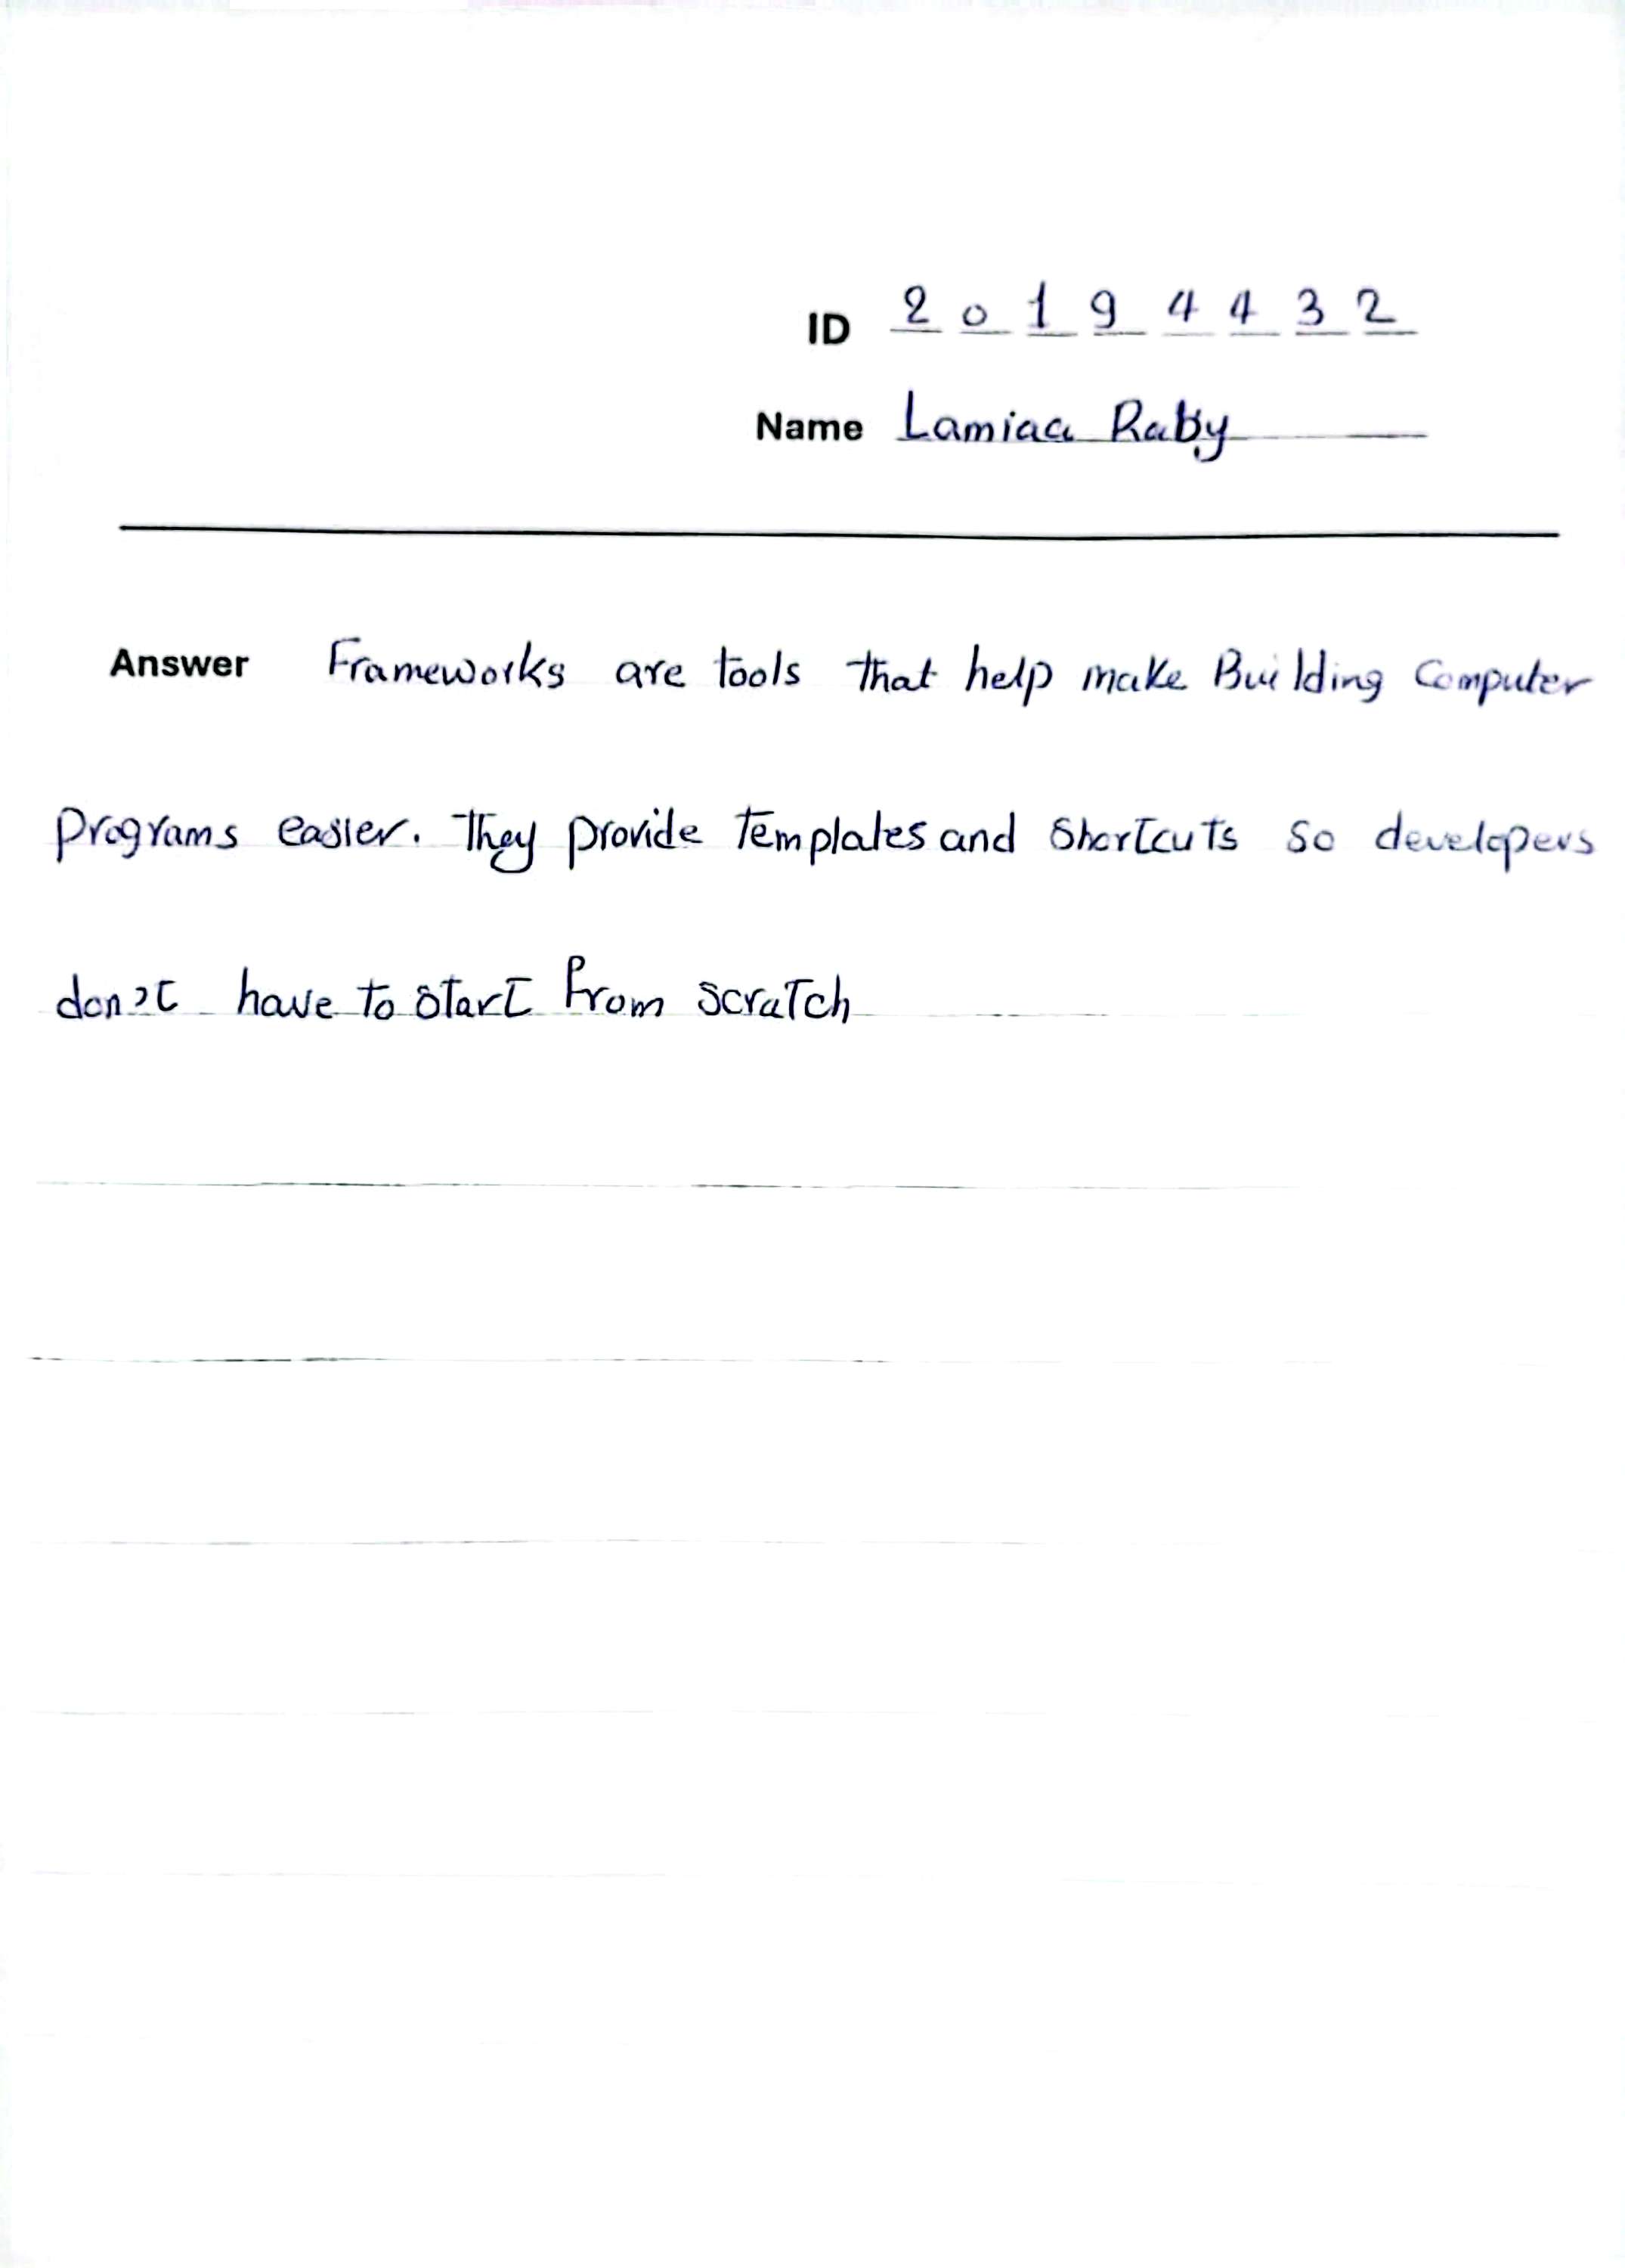 ID 20194432
Name Lamiaa Raby
Answer Frameworks are tools that help make Building Computer
Programs easier. They provide Templates and Shortcuts so developers
don't have to start from scratch